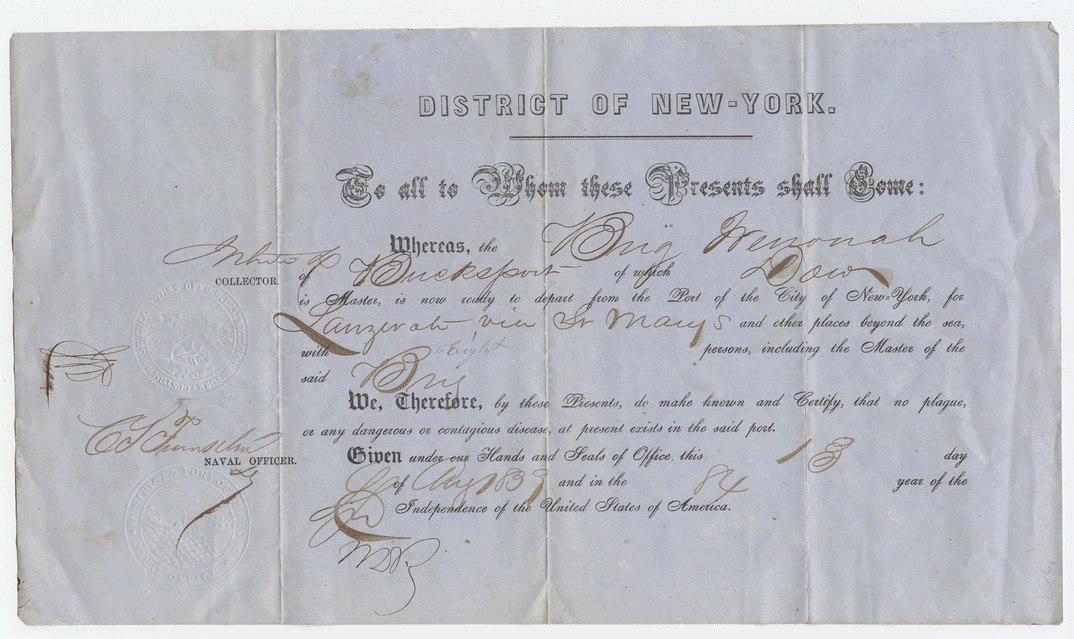 DISTRICT OF NEW-YORK.
To all to Whom these Presents shall Come:
Whereas, the Brig Wenonah
COLLECTOR.
of Bucksport of which Dow
is Master, is now ready to depart from the Port of the City of New-York, for
Lanzivate via St Marys and other places beyond the sea,
with Eight persons, including the Master of the
said Brig
We, Therefore, by these Presents, do make known and Certify, that no plague,
or any dangerous or contagious disease, at present exists in the said port.
NAVAL OFFICER.
Given under our Hands and Seals of Office, this 13 day
of Aug and in the 84 year of the
Independence of the United States of America.